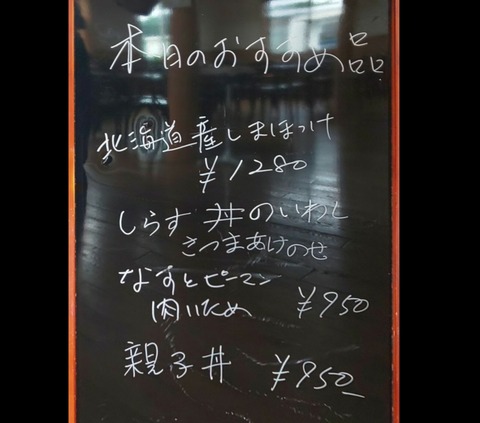 本日のおすすめ品
北海道産しまほっけ
¥1280
しらす丼のいわし
さつまあげのせ
なすとピーマン
肉いため ¥950
親子丼 ¥850